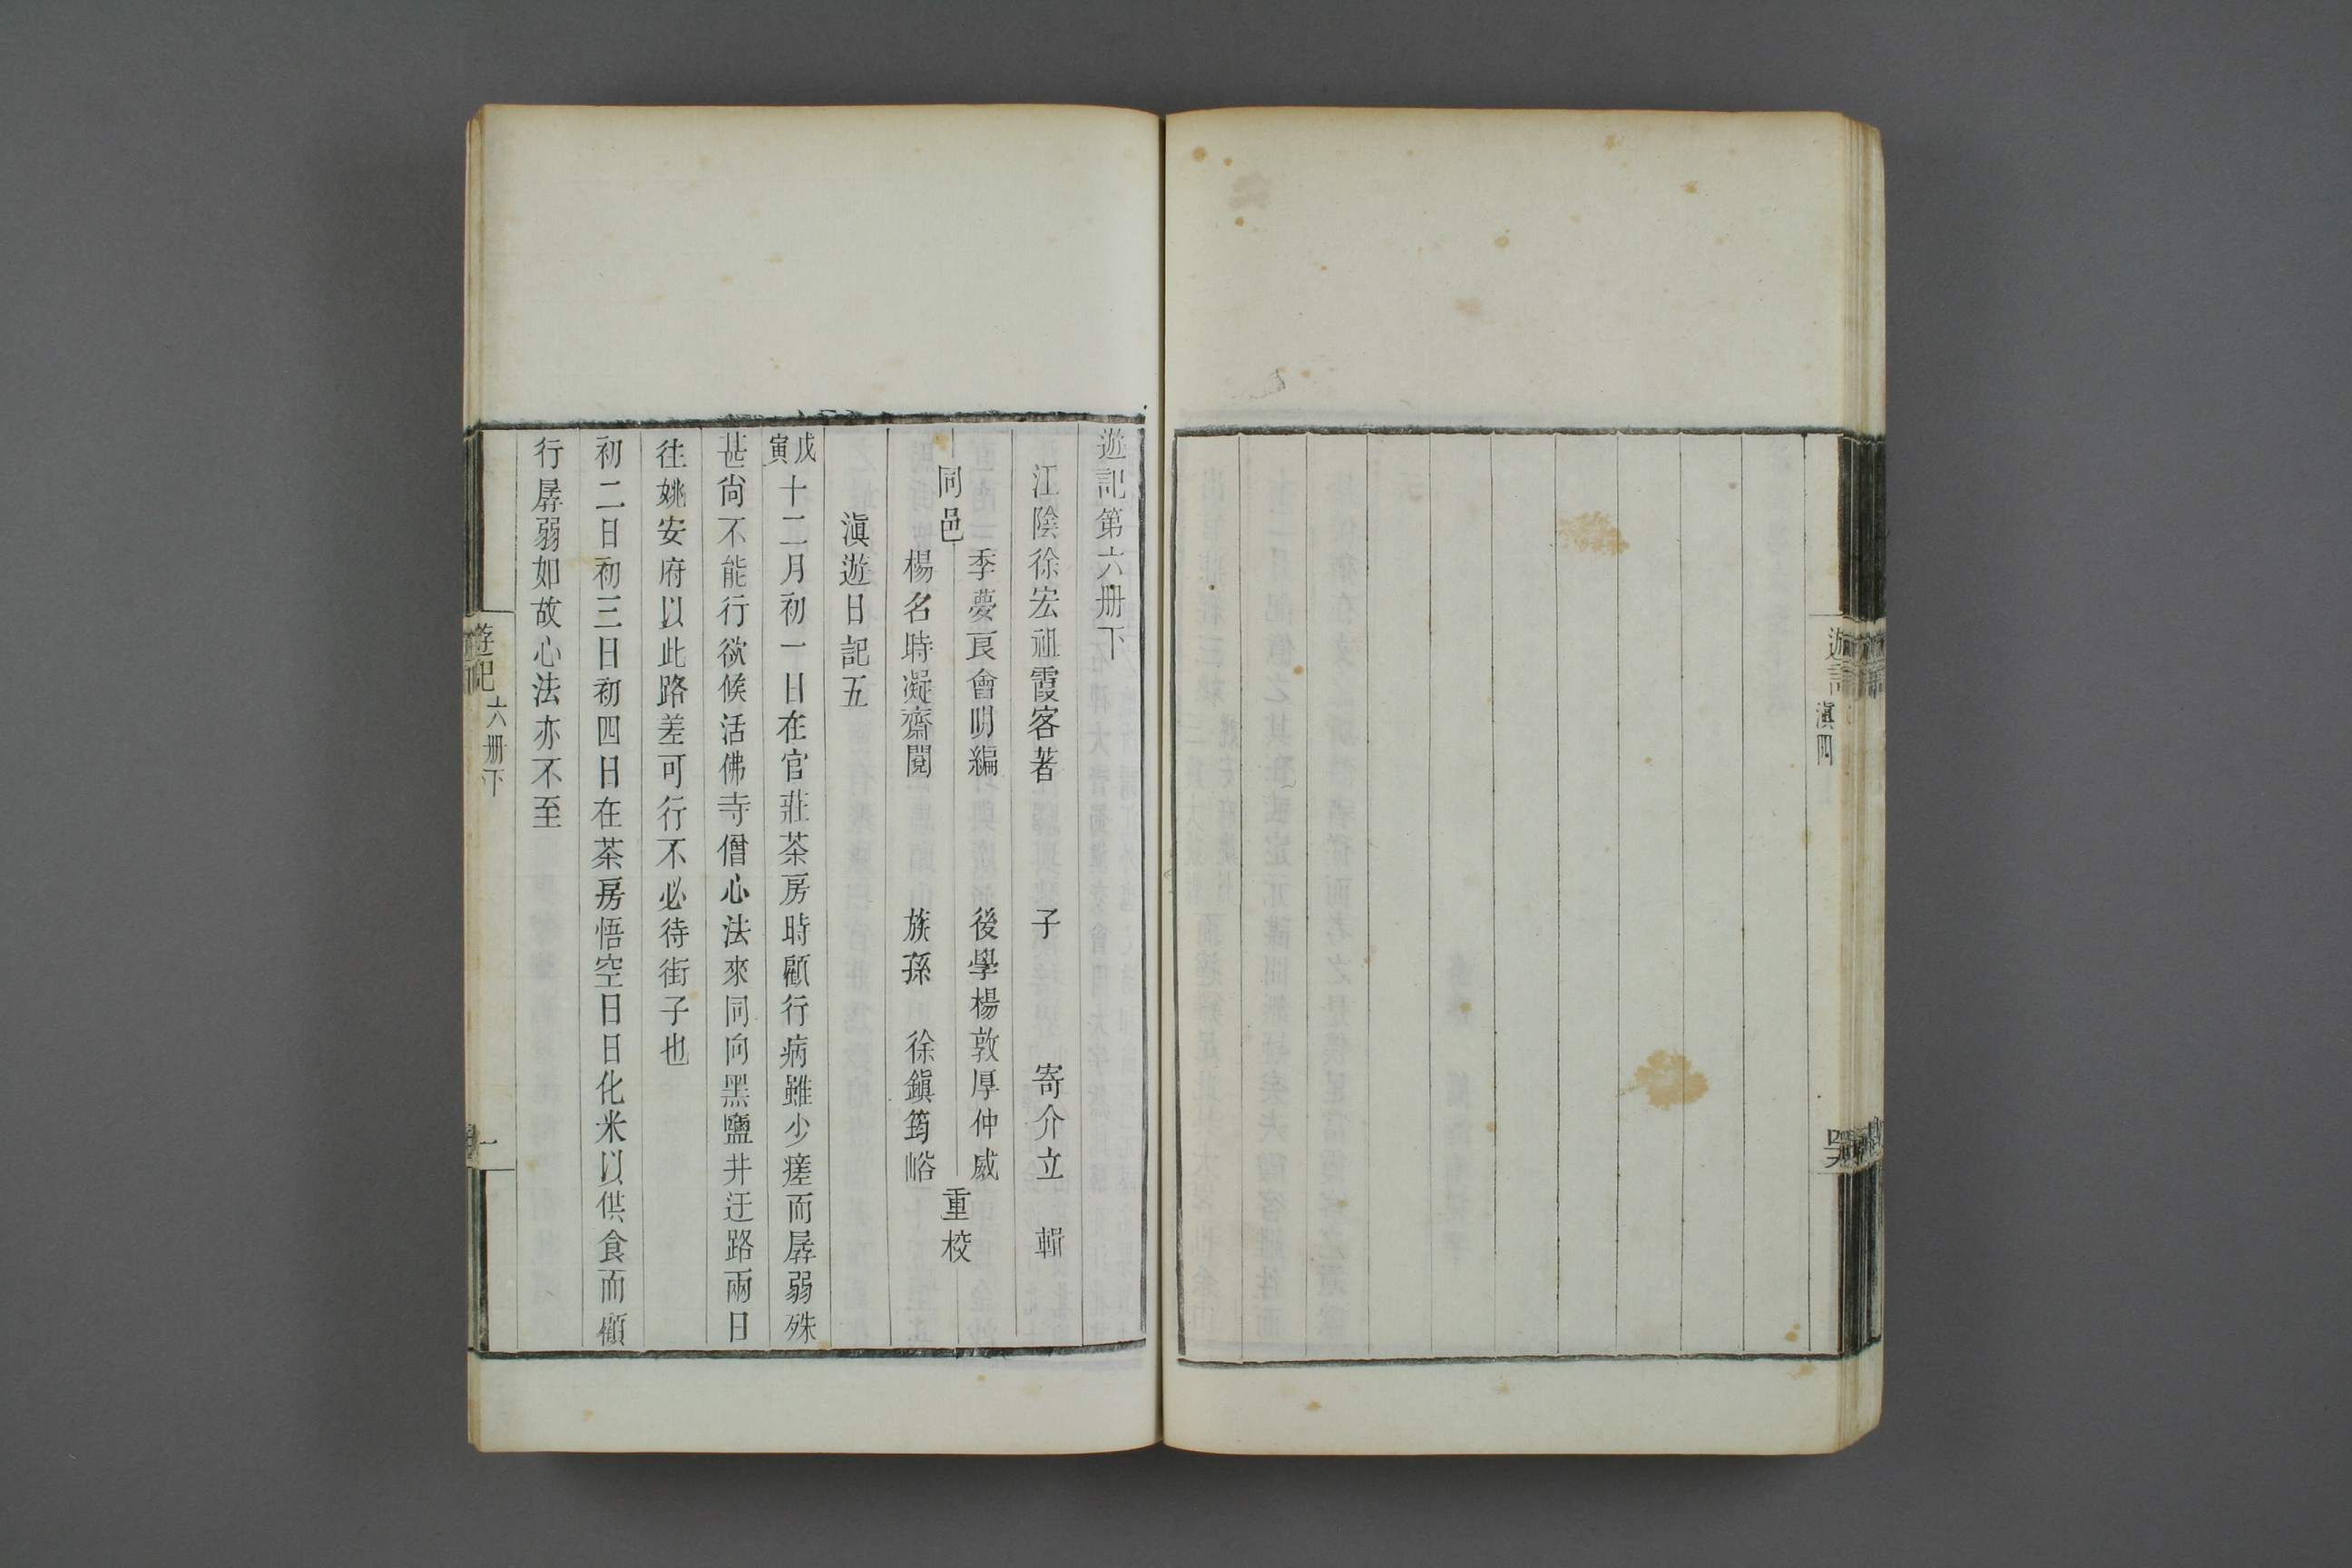 遊記
滇四
遊記第六册下
江陰徐宏祖霞客著 子 寄介立 輯
同邑
季夢良會明編 後學楊敦厚仲威
楊名時凝齋閱 族孫 徐鎮筠峪
重校
滇遊日記五
戊寅十二月初一日在官莊茶房時顧行病雖少瘥而孱弱殊
甚尙不能行欲候活佛寺僧心法來同向黑鹽井迂路兩日
往姚安府以此路差可行不必待街子也
初二日初三日初四日在茶房悟空日日化米以供食而顧
行孱弱如故心法亦不至
遊記
六册下
一